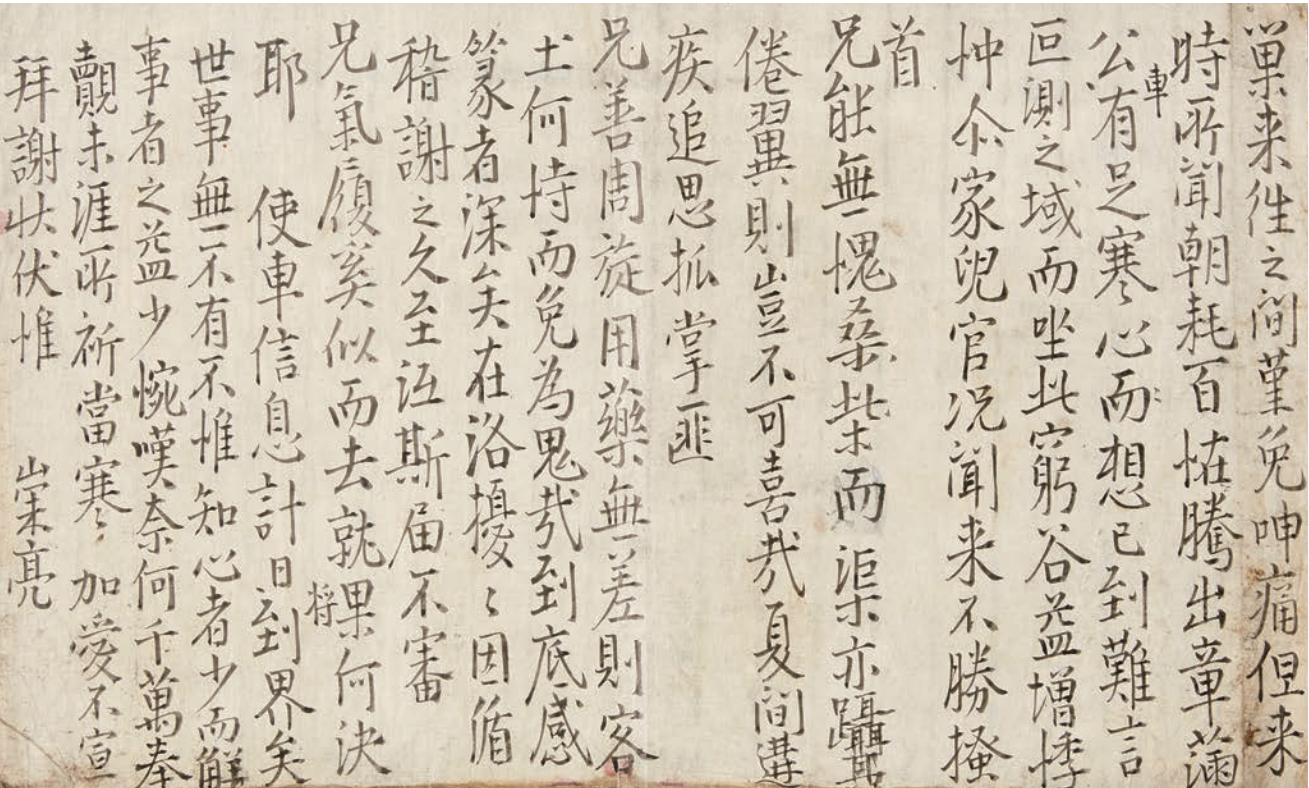 巢来徃之间堇免呻痛但来
時所聞朝耗百恠騰出章滿
公車有足寒心而想已到難言
叵測之域而坐此窮谷益增悸
忡尒家兒官况聞来不勝搔
首
兄能無愧桑柴而渠亦躡
倦翼則豈不可喜哉夏间遘
疾追思抓掌匪
兄善周旋用藥無差則客
土何恃而免為鬼哉到底感
篆者深矣在洛擾〻因循
稽謝之久至斯届不審
兄氣履奚似而去就將果何決
耶 使車信息計日到界矣
世事無一不有不惟知心者少而解
事者之益少惋嘆奈何千萬奉
覿未涯所祈當寒加愛不宣
拜謝狀伏惟 崇亮